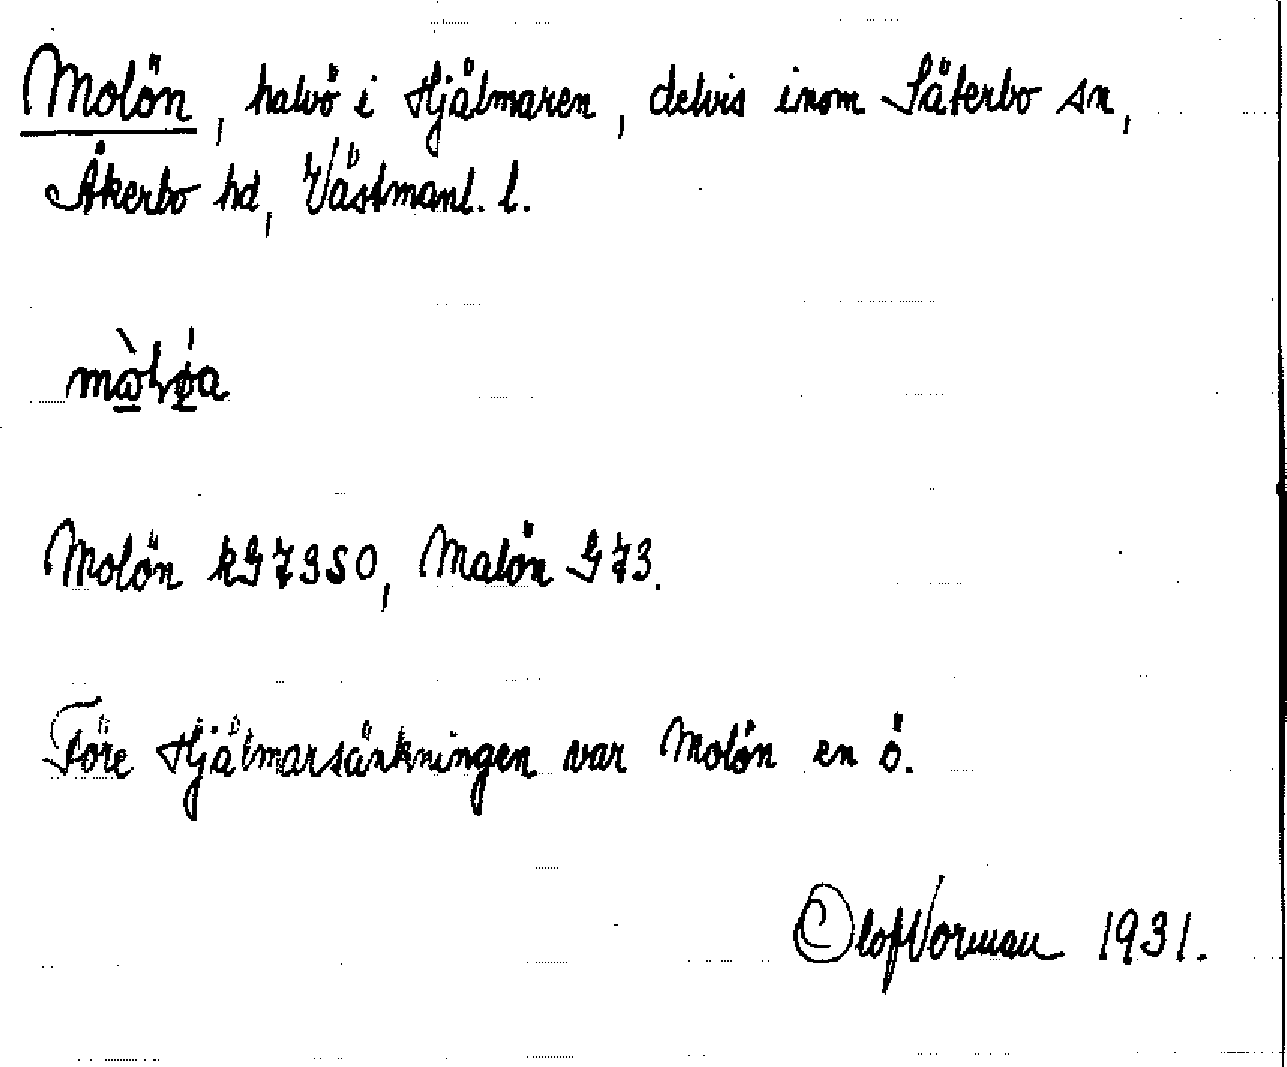 Molön, halvö i Hjälmaren, delvis inom Säterbo sn,
Åkerbo hd, Västmanl. l.
Molön kG7350, Malön G73.
Före Hjälmarsänkningen var Molön en ö.
Olof Vorman 1931.